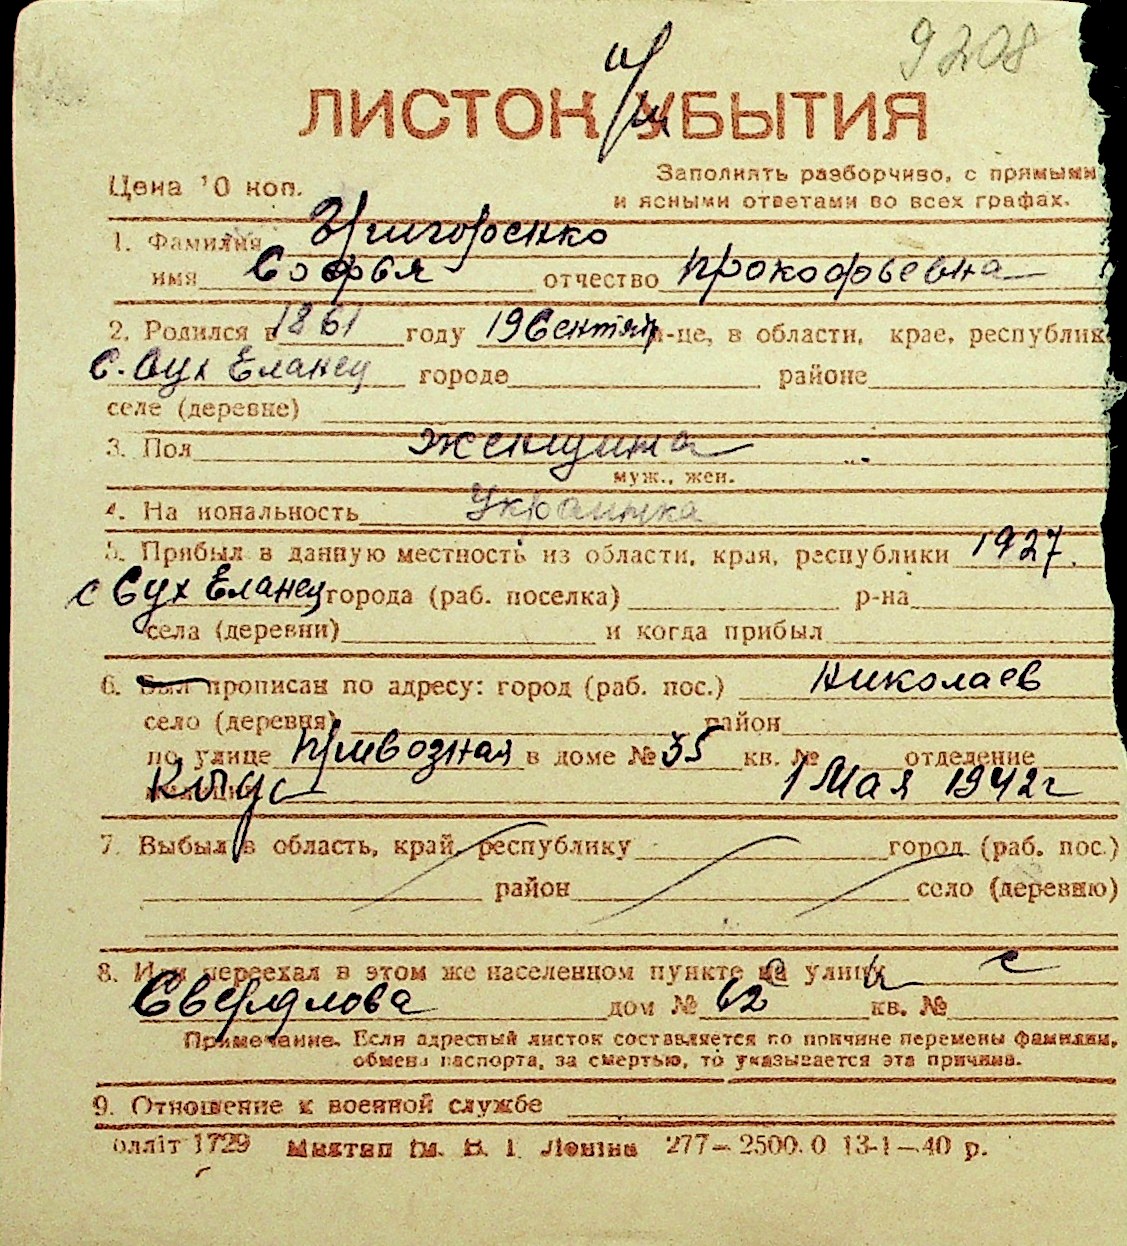 9208
ЛИСТОК УБЫТИЯ
при
Цена 10 коп.
Заполнять разборчиво, с прямыми
и ясными ответами во всех графах.
1. Фамилия Григоренко
имя Софья отчество Прокофьевна
2. Родился в 1861 году 19 Сентяб м-це, в области, крае, республик
с. Сух Еланец городе районе
селе (деревне)
3. Пол женщина
муж., жен.
4. На иональность Украинка
5. Прибыл в данную местность из области, края, республики 1927.
с Сух Еланец города (раб. поселка) р-на
села (деревни) и когда прибыл
6. Был прописан по адресу: город (раб. пос.) Николаев
село (деревня) район
по улице Привозная в доме № 35 кв. № отделение
милиции 1 Мая 1942 г
7. Выбыл в область, край, республику город (раб. пос.)
район село (деревню)
8. Или переехал в этом же населенном пункте на улицу с
Свердлова дом № 62 кв. №
Примечание. Если адресный листок составляется по причине перемены фамилии,
обмена паспорта, за смертью, то указывается эта причина.
9. Отношение к военной службе
олліт 1729 Миктип ім. В. І. Леніна 277—2500.0 13-1—40 р.